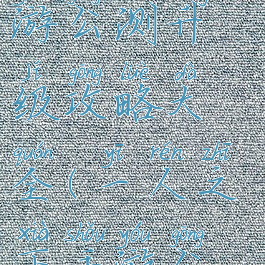 游公测升
jí gōng lüè dà
级攻略大
quán yī rén zhī
全(一人之
xià shǒu yóu gōng
下手游公